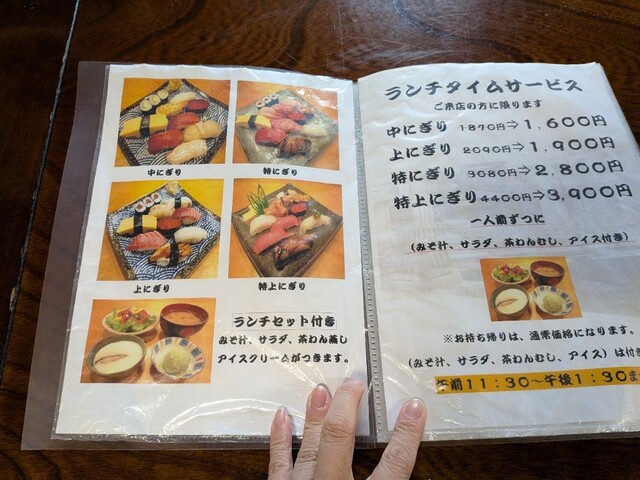 中にぎり
特にぎり
上にぎり
特上にぎり
ランチセット付き
みそ汁、サラダ、茶わん蒸し
アイスクリームがつきます。
ランチタイムサービス
ご来店の方に限ります
中にぎり 1870円⇒1,600円
上にぎり 2090円⇒1,900円
特にぎり 3080円⇒2,800円
特上にぎり 4400円⇒3,900円
一人前ずつに
(みそ汁、サラダ、茶わんむし、アイス付き)
※お持ち帰りは、通常価格になります。
(みそ汁、サラダ、茶わんむし、アイス)は付き
午前11:30～午後1:30ま